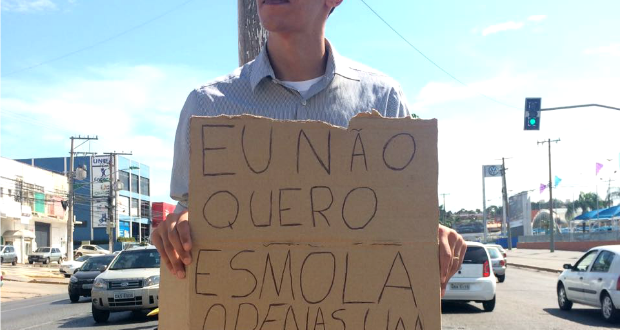 EU NÃO
QUERO
ESMOLA
APENAS UM